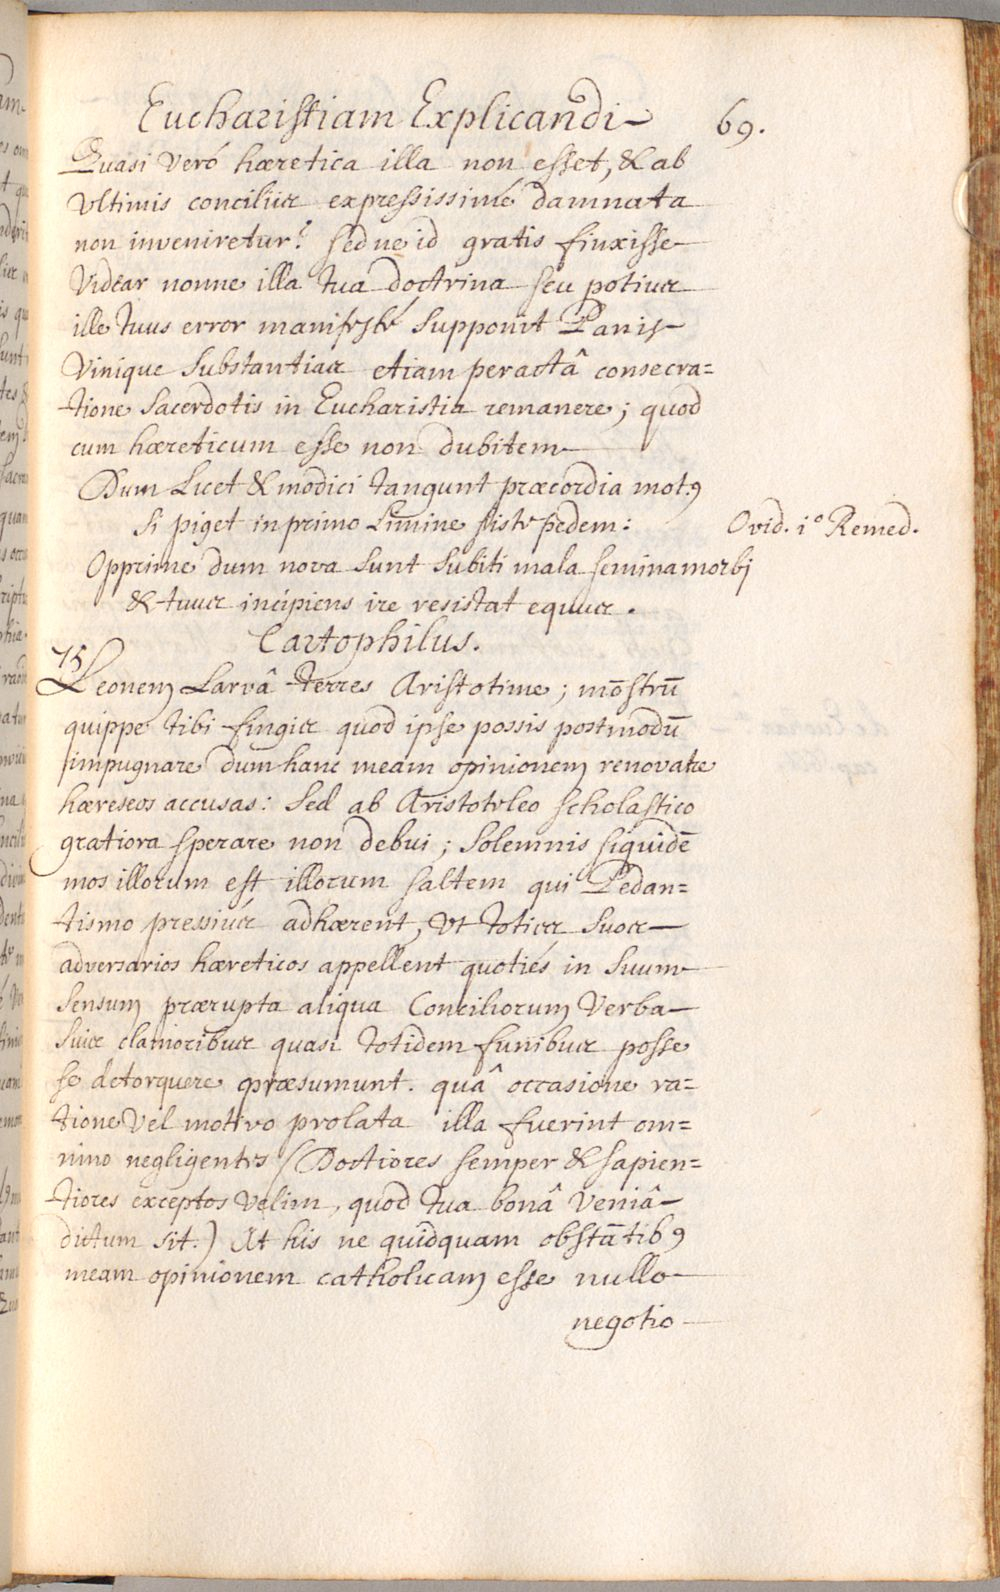 Eucharistiam Explicandi 69.
Quasi veró hæretica illa non esset, & ab
ultimis conciliis expressissimé damnata
non inveniretur? sed ne id gratis finxisse
videar nonne illa tua doctrina seu potius
ille tuus error manifesté supponit Panis
vinique substantias etiam peractâ consecra=
tione sacerdotis in Eucharistia remanere; quod
cum hæreticum esse non dubitem
Dum licet & modici tangunt præcordia mot9
Si piget in primo limine siste pedem: Ovid. 1° Remed.
Opprime dum nova sunt subiti mala semina morbj
& tuus incipiens ire resistat equus.
Cartophilus.
75
Leonem Larvâ terres Aristotime; mōstrū
quippe tibi fingis quod ipse possis postmodū
impugnare dum hanc meam opinionem renovatæ
hæreseos accusas: sed ab Aristoteleo scholastico
gratiora sperare non debui; solemnis siquidē
mos illorum est illorum saltem qui Pedan=
tismo pressiús adhærent, ut toties suos
adversarios hæreticos appellent quotiés in suum
sensum prærupta aliqua Conciliorum verba
suis clamoribus quasi totidem funibus posse
se detorquere præsumunt. quâ occasione ra=
tione vel motivo prolata illa fuerint om=
nino negligentes (Doctiores semper & sapien=
tiores exceptos velim, quod tua bonâ veniâ
dictum sit.) At his ne quidquam obstātib9
meam opinionem catholicam esse nullo
negotio